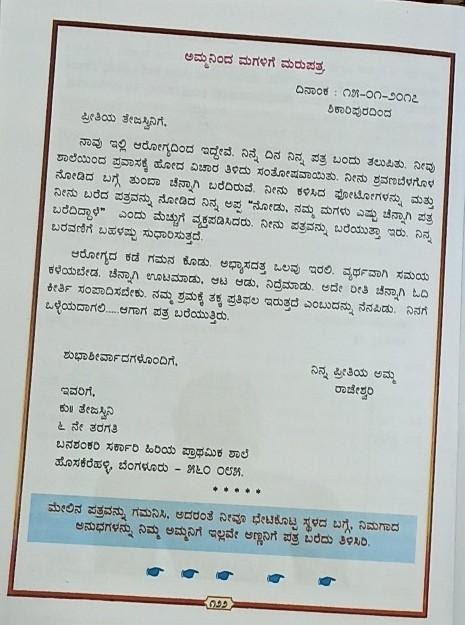 ಅಮ್ಮನಿಂದ ಮಗಳಿಗೆ ಮರುಪತ್ರ
ದಿನಾಂಕ : ೧೫-೦೧-೨೦೧೭
ಶಿಕಾರಿಪುರದಿಂದ
ಪ್ರೀತಿಯ ತೇಜಸ್ವಿನಿಗೆ,
ನಾವು ಇಲ್ಲಿ ಆರೋಗ್ಯದಿಂದ ಇದ್ದೇವೆ. ನಿನ್ನೆ ದಿನ ನಿನ್ನ ಪತ್ರ ಬಂದು ತಲುಪಿತು. ನೀವು
ಶಾಲೆಯಿಂದ ಪ್ರವಾಸಕ್ಕೆ ಹೋದ ವಿಚಾರ ತಿಳಿದು ಸಂತೋಷವಾಯಿತು. ನೀನು ಶ್ರವಣಬೆಳಗೊಳ
ನೋಡಿದ ಬಗ್ಗೆ ತುಂಬಾ ಚೆನ್ನಾಗಿ ಬರೆದಿರುವೆ. ನೀನು ಕಳಿಸಿದ ಫೋಟೋಗಳನ್ನು ಮತ್ತು
ನೀನು ಬರೆದ ಪತ್ರವನ್ನು ನೋಡಿದ ನಿನ್ನ ಅಪ್ಪ "ನೋಡು, ನಮ್ಮ ಮಗಳು ಎಷ್ಟು ಚೆನ್ನಾಗಿ ಪತ್ರ
ಬರೆದಿದ್ದಾಳೆ" ಎಂದು ಮೆಚ್ಚುಗೆ ವ್ಯಕ್ತಪಡಿಸಿದರು. ನೀನು ಪತ್ರವನ್ನು ಬರೆಯುತ್ತಾ ಇರು. ನಿನ್ನ
ಬರವಣಿಗೆ ಬಹಳಷ್ಟು ಸುಧಾರಿಸುತ್ತದೆ.
ಆರೋಗ್ಯದ ಕಡೆ ಗಮನ ಕೊಡು. ಅಭ್ಯಾಸದತ್ತ ಒಲವು ಇರಲಿ. ವ್ಯರ್ಥವಾಗಿ ಸಮಯ
ಕಳೆಯಬೇಡ. ಚೆನ್ನಾಗಿ ಊಟಮಾಡು, ಆಟ ಆಡು, ನಿದ್ರೆಮಾಡು. ಅದೇ ರೀತಿ ಚೆನ್ನಾಗಿ ಓದಿ
ಕೀರ್ತಿ ಸಂಪಾದಿಸಬೇಕು. ನಮ್ಮ ಶ್ರಮಕ್ಕೆ ತಕ್ಕ ಪ್ರತಿಫಲ ಇರುತ್ತದೆ ಎಂಬುದನ್ನು ನೆನಪಿಡು. ನಿನಗೆ
ಒಳ್ಳೆಯದಾಗಲಿ.....ಆಗಾಗ ಪತ್ರ ಬರೆಯುತ್ತಿರು.
ಶುಭಾಶೀರ್ವಾದಗಳೊಂದಿಗೆ,
ನಿನ್ನ ಪ್ರೀತಿಯ ಅಮ್ಮ
ರಾಜೇಶ್ವರಿ
ಇವರಿಗೆ,
ಕು॥ ತೇಜಸ್ವಿನಿ
೬ ನೇ ತರಗತಿ
ಬನಶಂಕರಿ ಸರ್ಕಾರಿ ಹಿರಿಯ ಪ್ರಾಥಮಿಕ ಶಾಲೆ
ಹೊಸಕೆರೆಹಳ್ಳಿ, ಬೆಂಗಳೂರು - ೫೬೦ ೦೮೫.
* * * * *
ಮೇಲಿನ ಪತ್ರವನ್ನು ಗಮನಿಸಿ, ಅದರಂತೆ ನೀವೂ ಭೇಟಿಕೊಟ್ಟ ಸ್ಥಳದ ಬಗ್ಗೆ, ನಿಮಗಾದ
ಅನುಭಗಳನ್ನು ನಿಮ್ಮ ಅಮ್ಮನಿಗೆ ಇಲ್ಲವೇ ಅಣ್ಣನಿಗೆ ಪತ್ರ ಬರೆದು ತಿಳಿಸಿರಿ.
೧೨೨